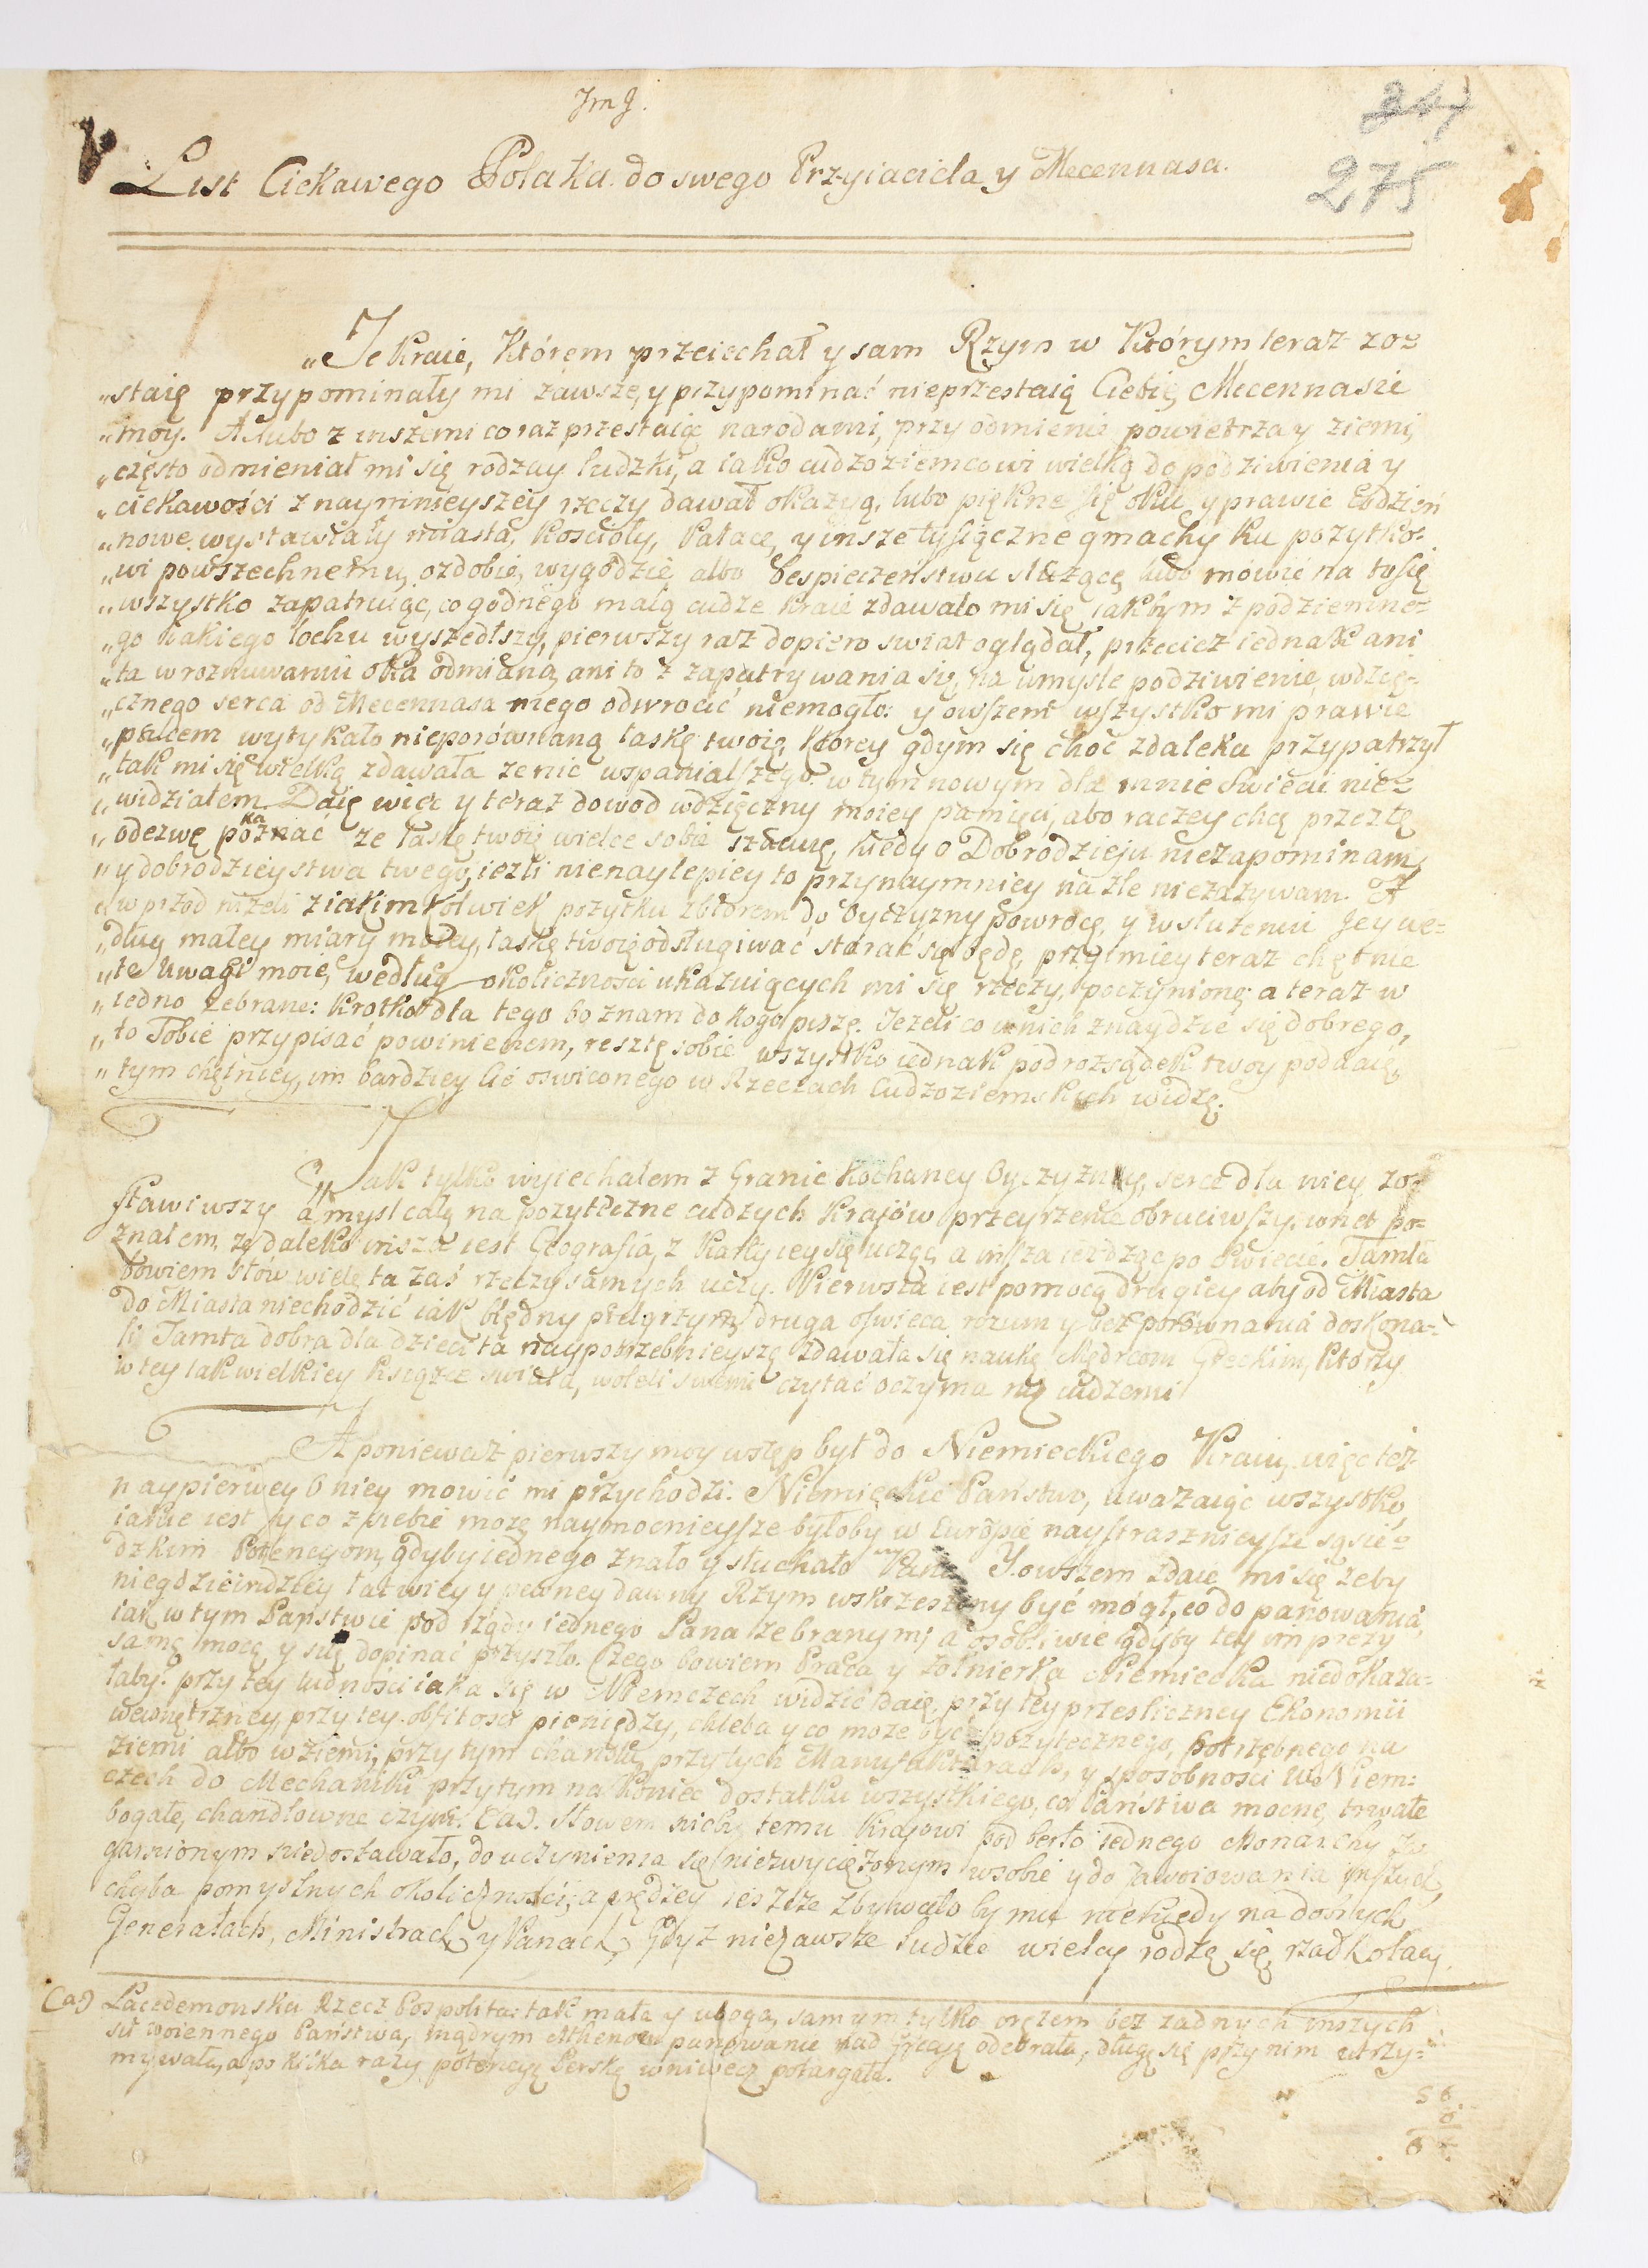 Jmg.
247
275
List Ciekawego Polaka do swego Przyiaciela y Mecennasa.
„Te kraie, którem przeiechał y sam Rzym w którym teraz zo=
„staię przypominały mi zawsze, y przypominać nieprzestaią Ciebie, Mecennasie
„moy. A lubo z inszemi coraz przestaiąc narodami, przy odmienie powietrza y ziemi,
„często odmieniał mi się rodzay ludzki, a iako cudzoziemcowi wielką do podziwienia y
„ciekawości z naymnieyszey rzeczy dawał okazyą, lubo piękne się oku, y prawie codzień
„nowe wystawiały miasta, kościoły, Pałace, y insze tysiączne gmachy ku pożytko=
„wi powszechnemu, ozdobie, wygodzie albo bespieczeństwu służące, lubo mówie na to się
„wszystko zapatruiąc, co godnego maią cudze kraie zdawało mi się iakbym z podziemne=
„go iakiego lochu wyszedłszy, pierwszy raz dopiero swiat oglądał, przecież iednak ani
„ta w rozrywaniu oka odmiana, ani to z zapatrywania się, na umyśle podziwienie, wdzię=
„cznego serca od Mecennasa mego odwrocić niemogło: y owszem wszystko mi prawie
„palcem wytykało nieporównaną łaskę twoię, ktorey gdym się choc zdaleka przypatrzył
„tak mi się wielką zdawała ze nic wspanialszego w tym nowym dla mnie Swiecie nie=
„widziałem. Daię więc y teraz dowod wdzięczny moiey pamięci, abo raczey chcę przez tę
„odezwę pokazać ze łaskę twoię wielce sobie szacuię, kiedy o Dobrodzieju niezapominam,
„y dobrodzieystwa twego, iezli nienaylepiey to przynaymniey na złe niezazywam. A
„w przod nizeli z iakimkolwiek pozytku zbiorem do Oyczyzny powrocę, y w służeniu Jey we=
„dług małey miary moiey, łaskę twoię odsługiwać starać się będę, przyimiey teraz chętnie
„te uwagi moie, według okoliczności ukazuiących mi się rzeczy, poczynione; a teraz w
„iedno zebrane: krotko dla tego bo znam do kogo piszę. Jezeli co w nich znaydzie się dobrego,
„to Tobie przypisać powinienem, resztę sobie wszystko iednak pod rozsądek twoy poddaię,
„tym chętniey, im bardziey Cię oswieconego w Rzeczach Cudzoziemskich widzę.
Jak tylko wyiechałem z Granic kochaney Oyczyzny, serce dla niey zo=
stawiwszy a mysl całą na pozyteczne cudzych Krajów przeyrzenie obruciwszy, wnet po=
znałem, ze daleko insza iest Geografia, z ktorey się uczą, a insza iezdząc po swiecie. Tamta
bowiem słow wiele, ta zaś rzeczy samych uczy. Pierwsza iest pomocą drugiey aby od Miasta
do Miasta niechodzić iak błędny pielgrzym, druga oswieca rozum y bez porównania doskona=
li. Tamta dobra dla dzieci ta naypotrzebnieyszą zdawała się nauką Mędrcom Greckim, ktorzy
w tey tak wielkiey księdze swiata, woleli swemi czytać oczyma niz cudzemi
A ponieważ pierwszy moy wstęp był do Niemieckiego Kraiu, więc też
naypierwey o niey mowić mi przychodzi. Niemieckie Państwo, uwazaiąc wszystko,
iakie iest y co z siebie moze naymocnieysze byłoby w Europie naystrasznieysze sąsie=
dzkim Potencyom, gdyby iednego znało y słuchało Pana. Y owszem zdaie mi się żeby
niegdzieindziey łatwiey y pewney dawny Rzym wskrzeszony być mógł, co do panowania,
iak w tym Państwie pod rządy iednego Pana zebranym; a osobliwie gdyby tey imprezy
samą mocą y siłą dopinać przyszło. Czego bowiem Praca y Zołnierka Niemiecka niedokaza=
łaby. przy tey ludności iaka się w Niemczech widzić daie, przy tey prześliczney Ekonomii
wewnętrzney, przy tey obfitości pieniędzy, chleba y co moze być pozytecznego, potrzebnego na
ziemi albo w ziemi, przy tym chandlu, przy tych Manufakturach, y sposobności w Niem=
czech do Mechaniki przy tym na koniec dostatku wszystkiego, co Państwa mocne, trwałe
bogate, chandlowne czyni. (a). Słowem nicby temu Krajowi pod berło iednego Monarchy za=
garnionym niedostawało, do uczynienia się niezwycięzonym w sobie y do zawoiowania inszych,
chyba pomyslnych okoliczności; a prędzey ieszcze zbywało by mu niekiedy na dobrych
Generałach, Ministrach, y Panach, Gdyż nie zawsze ludzie wielcy rodzą się, rzadko tacy.
(a) Lacedemonska Rzecz Pospolita: tak mała y uboga, samym tylko orężem bez zadnych inszych
sił woiennego Państwa, mądrym Athenom panowanie nad Grecyą odebrała, długo się przy nim utrzy=
mywała, a po kilka razy potencyę Perską wniwecz potargała.
56
8